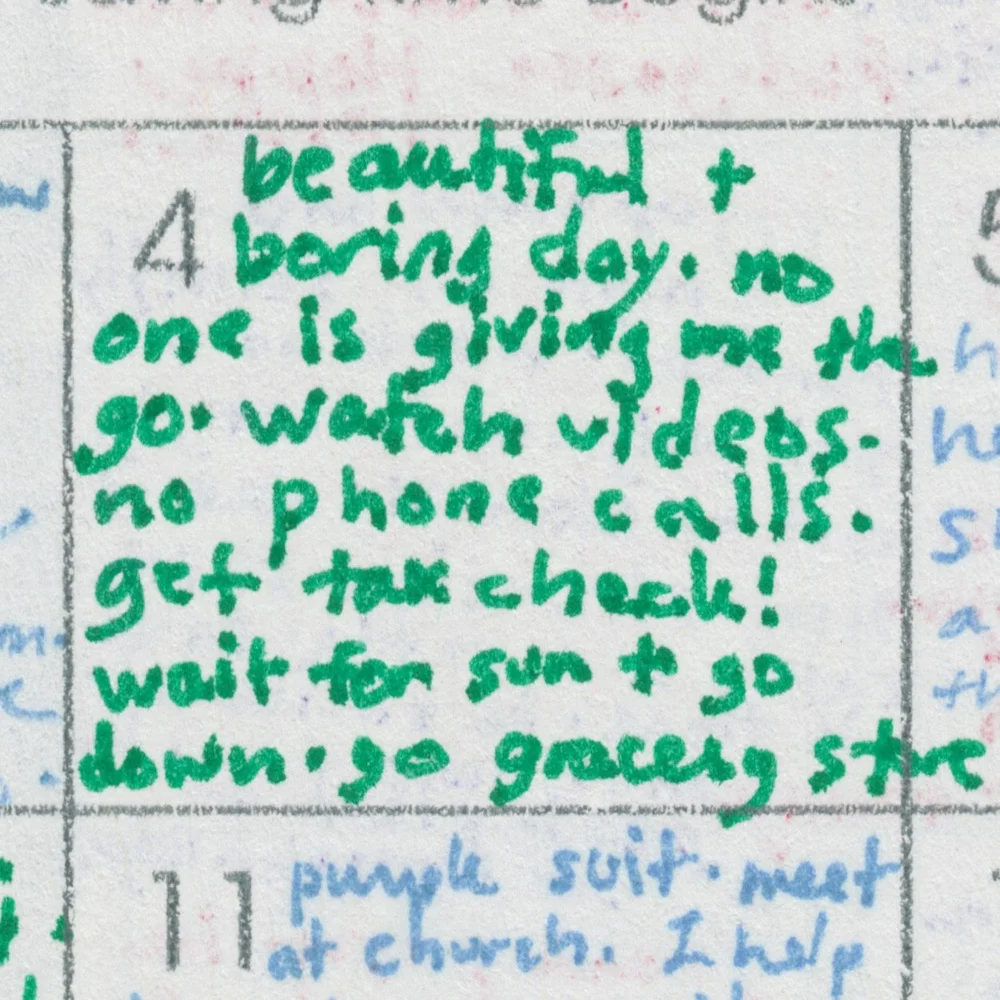 beautiful +
4 boring day. no
one is giving me the
go. watch videos.
no phone calls.
get tax check!
wait for sun + go
down. go grocery store
11 purple suit. meet
at church. I help